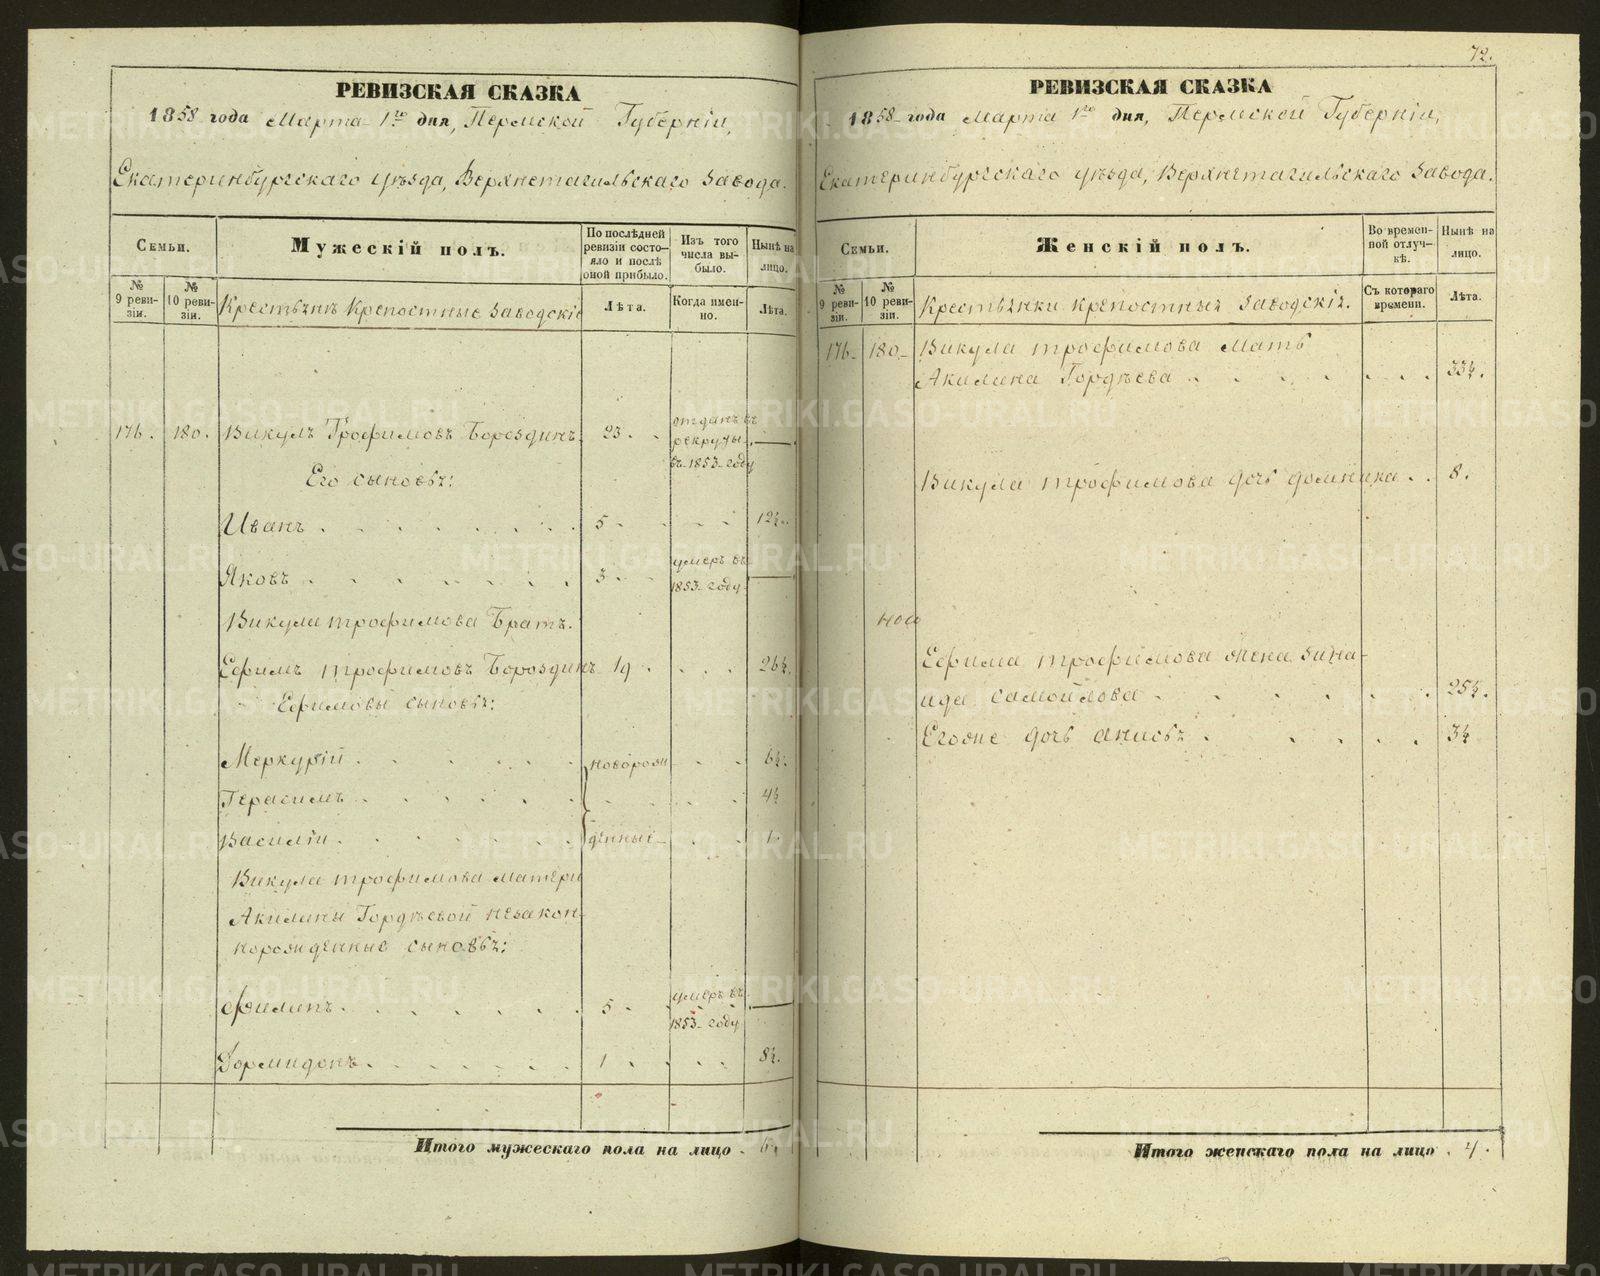 РЕВИЗСКАЯ СКАЗКА
1858 года Марта 1го дня, Пермской Губерніи,
Екатеринбургскаго уѣзда, Верхнетагильскаго Завода.
Семьи.
№ 9 ревизіи.
№ 10 ревизіи.
Мужескій полъ.
Крестьянъ Крепостные Заводскіе
По послѣдней
ревизіи состо-
яло и послѣ
оной прибыло.
Лѣта.
Изъ того
числа вы-
было.
Когда имен-
но.
Нынѣ на
лицо.
Лѣта.
176. 180. Викулъ Трофимовъ Бороздинъ. 23. отданъ въ рекруты въ 1853 году
Его сыновья:
Иванъ 5 12½.
Яковъ 3 умеръ въ 1853 году
Викула трофимова Братъ.
Ефимъ трофимовъ Бороздинъ 19. 26½.
Ефимовы сыновья:
Меркурій новорож- 6½.
Герасимъ 4½
Василій денные 1.
Викула трофимова матери
Акилины Гордѣевой незакон-
норожденные сыновья:
Филипъ 5 умеръ въ 1853 году
Дормидонъ 1 8½.
Итого мужескаго пола на лицо 6.
72.
РЕВИЗСКАЯ СКАЗКА
1858 года марта 1го дня, Пермской Губерніи,
Екатеринбургскаго уѣзда, Верхнетагильскаго Завода.
Семьи.
№ 9 ревизіи.
№ 10 ревизіи.
Женскій полъ.
Крестьянки крепостныя Заводскія.
Во времен-
ной отлуч-
кѣ.
Съ котораго
времени.
Нынѣ на
лицо.
Лѣта.
176. 180. Викула трофимова Мать
Акилина Гордѣева 33½.
Викула трофимова дочь домника 8.
Ефима трофимова жена Зина-
ида самойлова 25½.
Егоже дочь анисья 3½
Итого женскаго пола на лицо 4.
METRIKI.GASO-URAL.RU